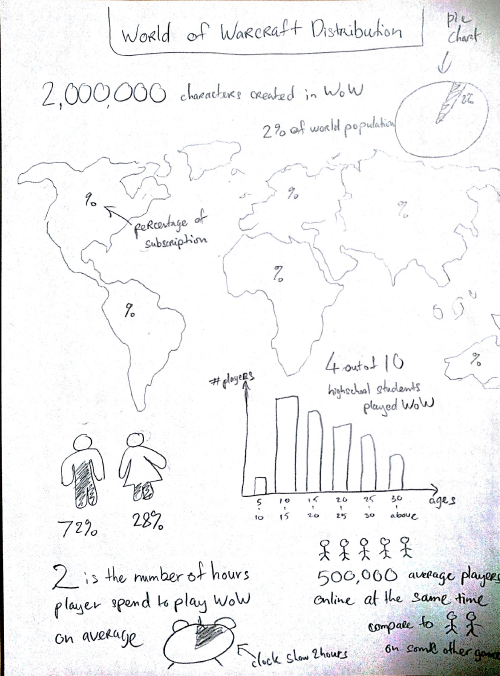 World of Warcraft Distribution
pie
chart
2,000,000 characters created in WoW
2% of world population
2%
%
%
%
percentage of
subscription
%
%
%
4 out of 10
highschool students
played WoW
# players
5 10 15 20 25 30
10 15 20 25 30 above
ages
72%
28%
2 is the number of hours
player spend to play WoW
on average
clock show 2 hours
500,000 average players
online at the same time
compare to
on some other games